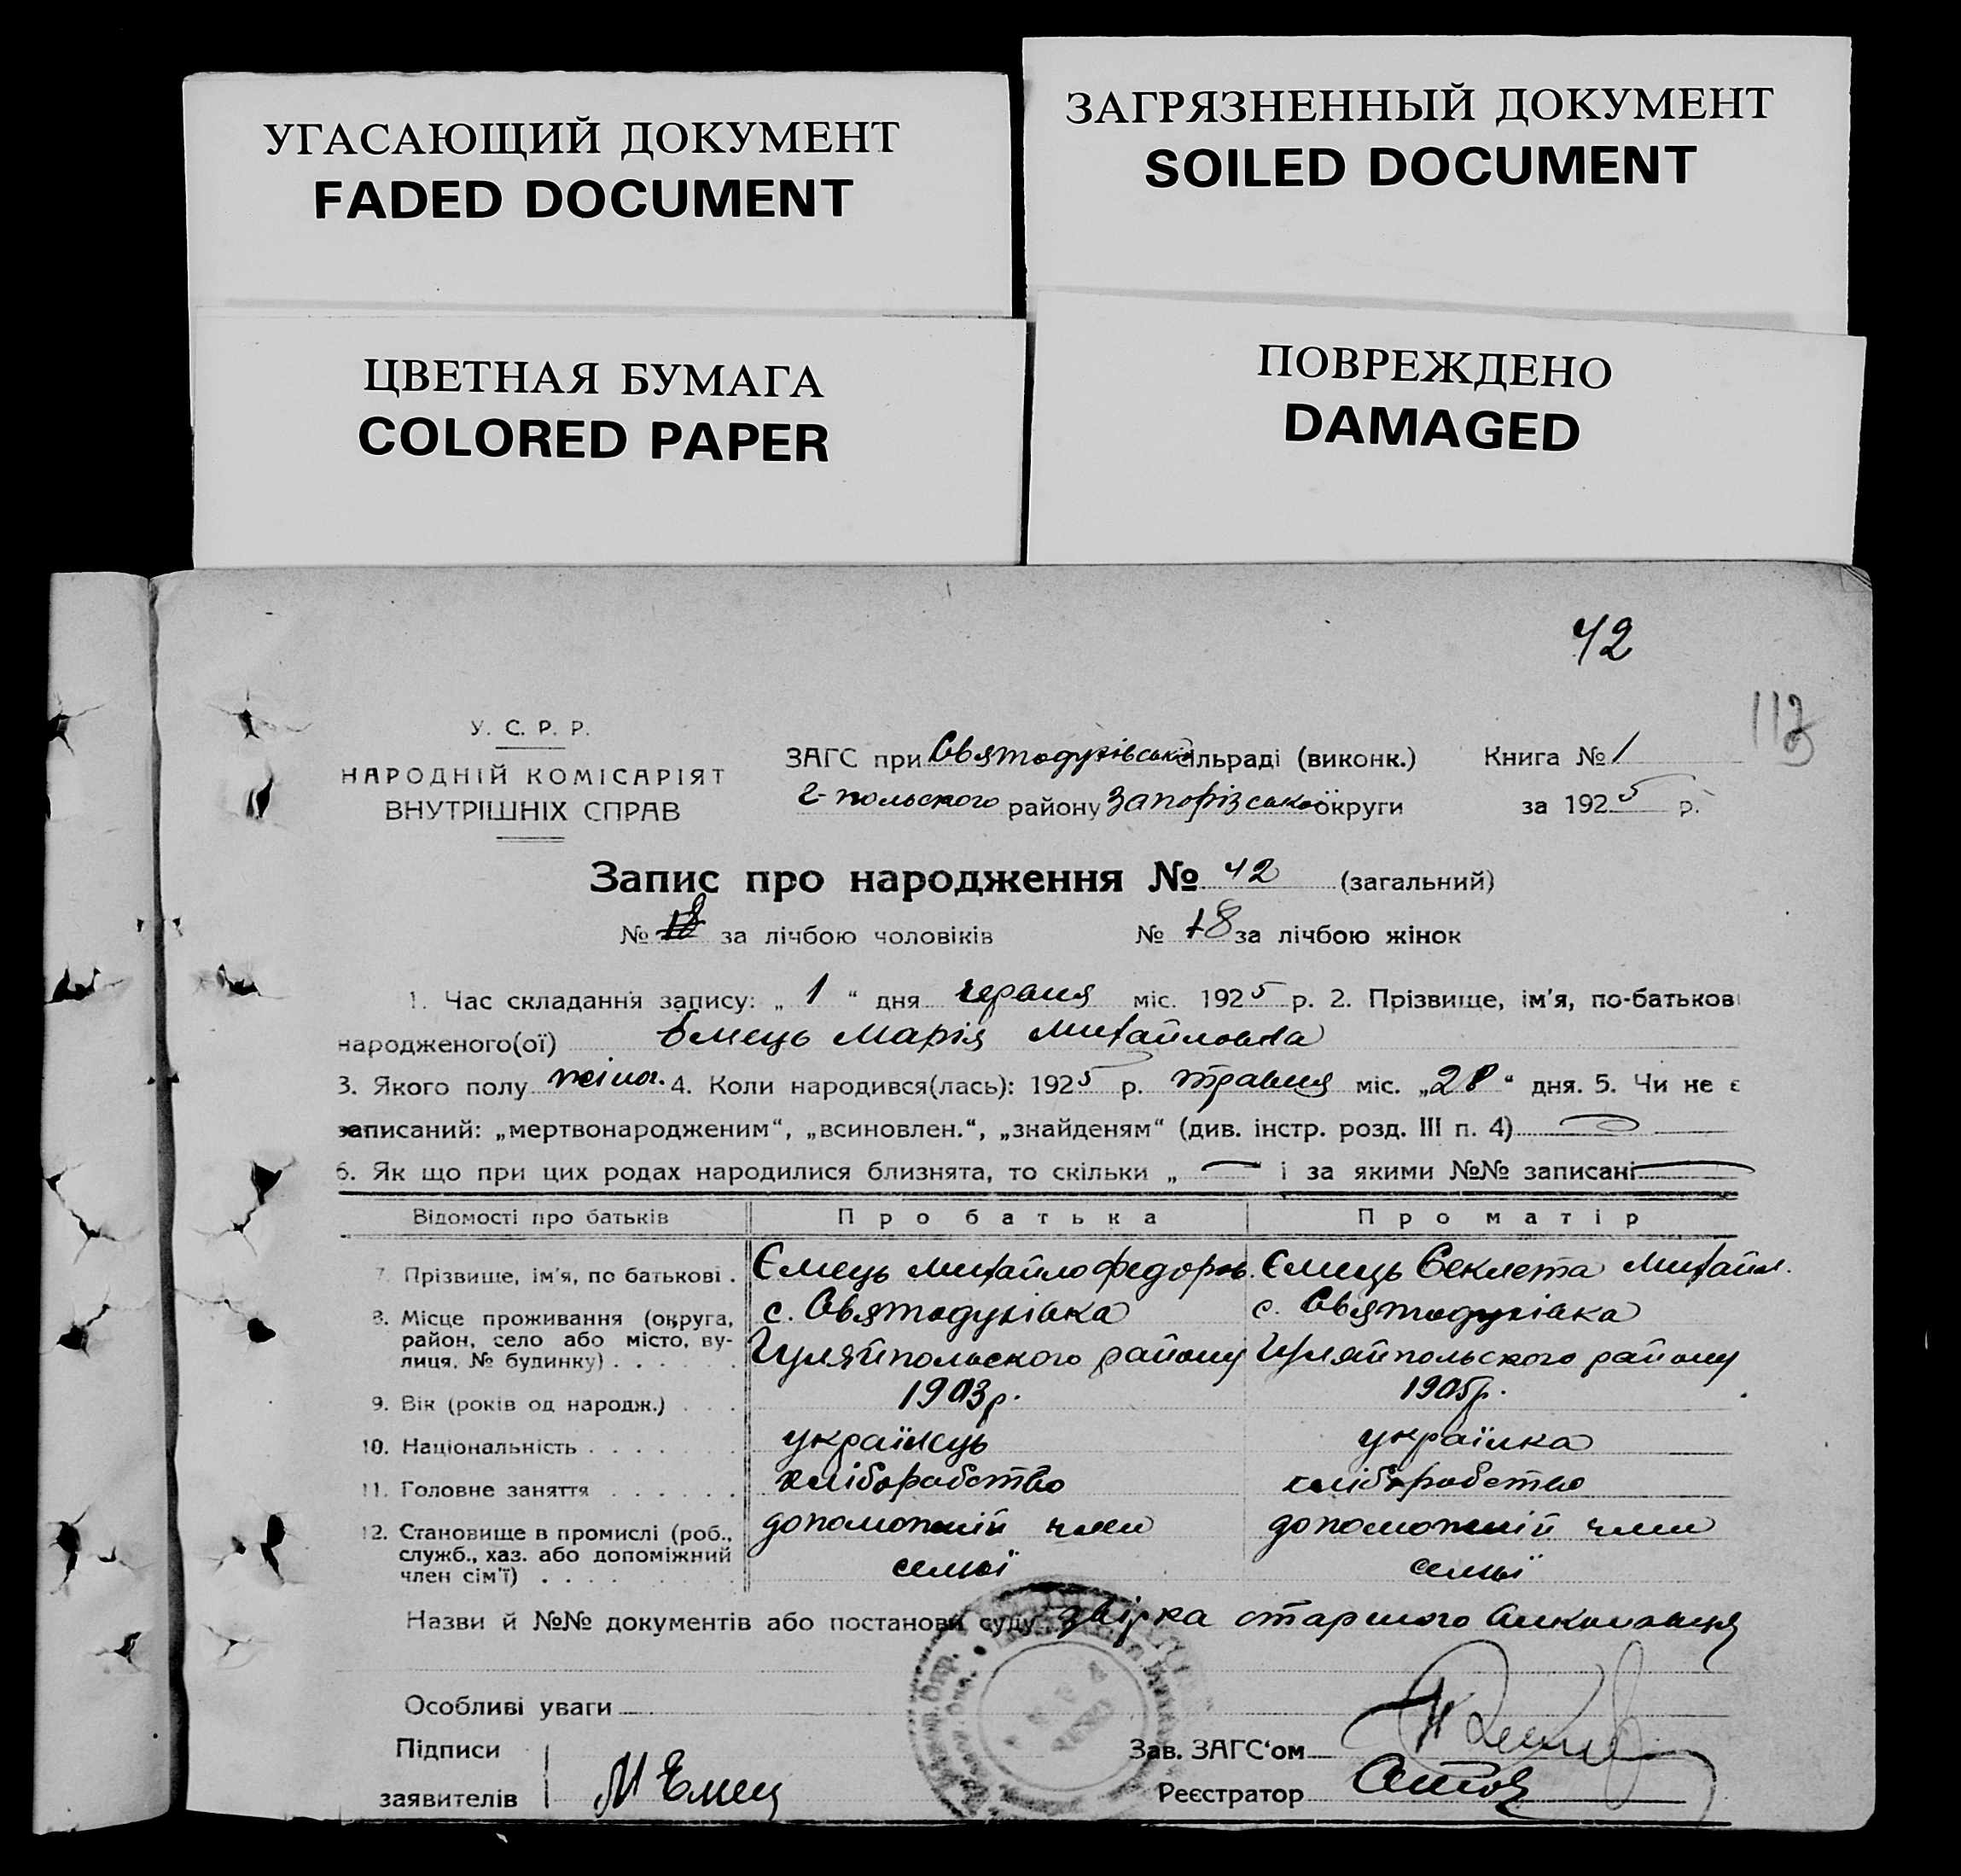 УГАСАЮЩИЙ ДОКУМЕНТ
FADED DOCUMENT
ЗАГРЯЗНЕННЫЙ ДОКУМЕНТ
SOILED DOCUMENT
ЦВЕТНАЯ БУМАГА
COLORED PAPER
ПОВРЕЖДЕНО
DAMAGED
42
У. С. Р. Р.
НАРОДНІЙ КОМІСАРІЯТ
ВНУТРІШНІХ СПРАВ
ЗАГС при Святодухівськ сільраді (виконк.)
Г-польского району Запорізської округи
Книга № 1
за 1925 р.
Запис про народження № 42 (загальний)
№ за лічбою чоловіків № 18 за лічбою жінок
1. Час складання запису: „ 1 “ дня червня міс. 1925 р. 2. Прізвище, ім'я, по-батькові
народженого(ої) Ємець Марія Михайловна
3. Якого полу жіноч. 4. Коли народився(лась): 1925 р. травня міс. „28“ дня. 5. Чи не є
записаний: „мертвонародженим“, „всиновлен.“, „знайденям“ (див. інстр. розд. III п. 4)
6. Як що при цих родах народилися близнята, то скільки „ — “ і за якими №№ записані —
Відомості про батьків Про батька Про матір
7. Прізвище, ім'я, по батькові . Ємець Михайло Федоров. Ємець Секлета Михайл.
8. Місце проживання (округа, район, село або місто, вулиця, № будинку) . . . . . . с. Святодухівка с. Святодухівка
Гуляйпольского району Гуляйпольского району
9. Вік (років од народж.) . . . 1903 р. 1905 р.
10. Національність . . . . українець українка
11. Головне заняття . . . . . . хліборобство хліборобство
12. Становище в промислі (роб., служб., хаз. або допоміжний член сім'ї) . . . . допоможній член допоможній член
семьї семьї
Назви й №№ документів або постанови суду звірка старшого
Особливі уваги
Підписи
заявителів М Емец
Зав. ЗАГС'ом
Реєстратор